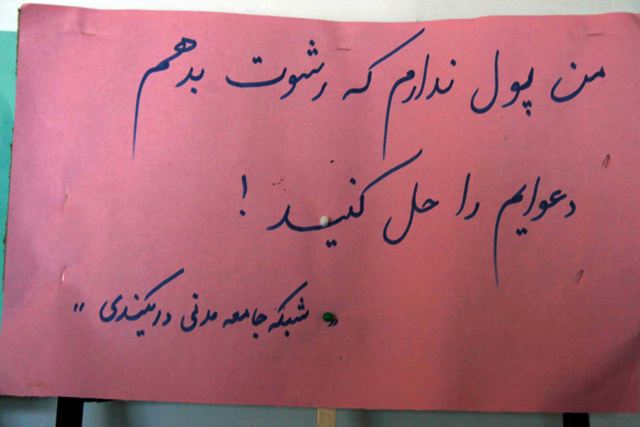 من پول ندارم که رشوت بدهم
دعوایم را حل کنید !
" شبکه جامعه مدنی دریکیندی "